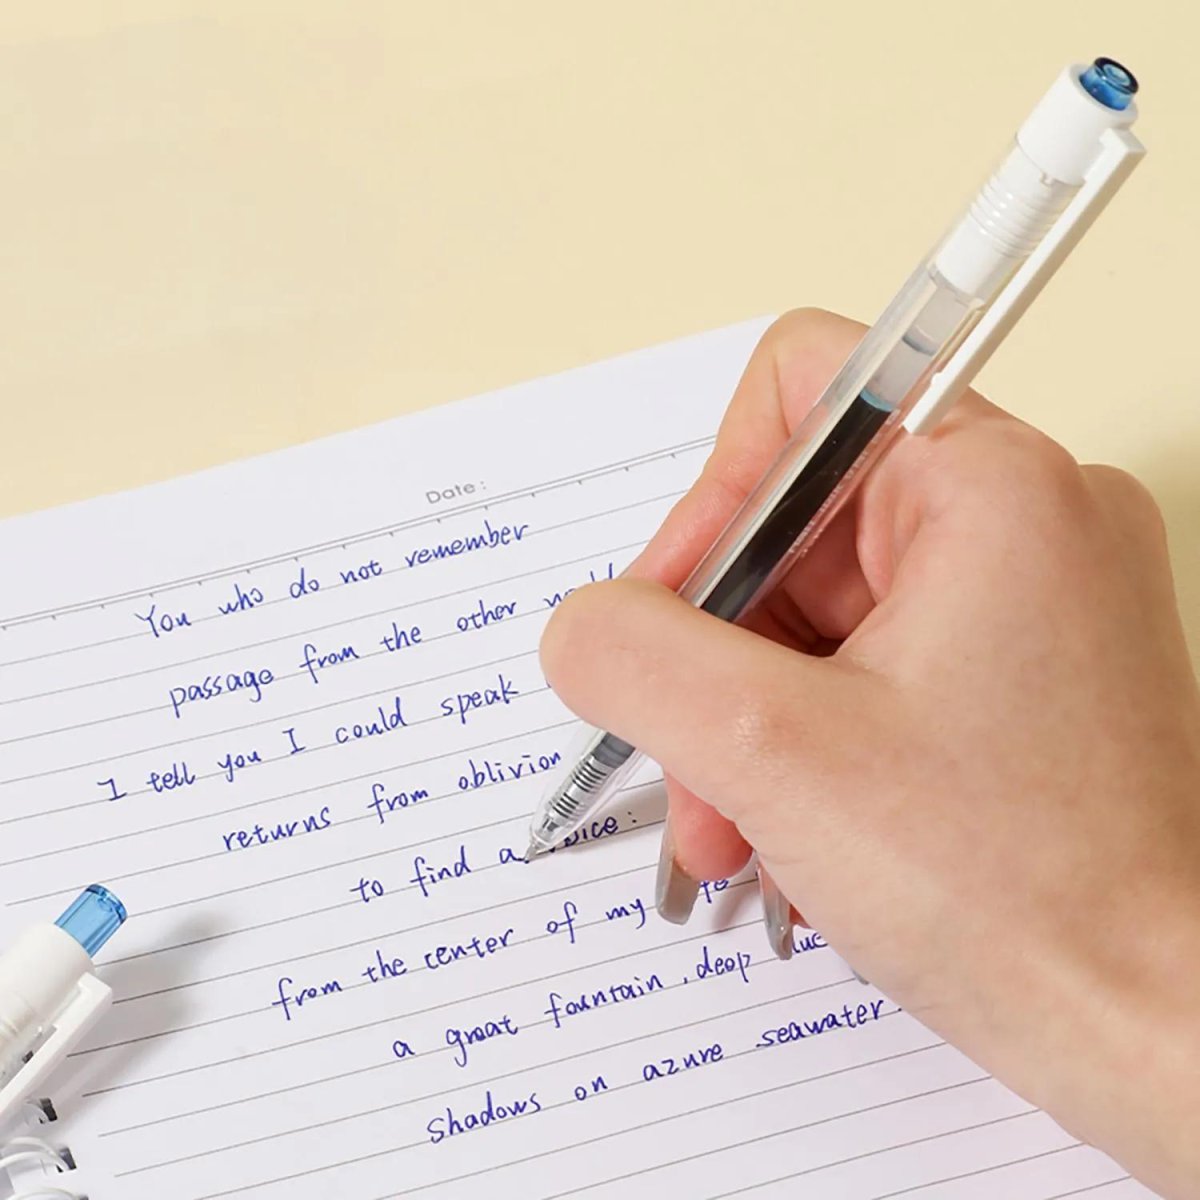 Date:
You who do not remember
passage from the other
I tell you I could speak
returns from oblivion
to find a voice:
from the center of my
a great fountain, deep
shadows on azure seawater.